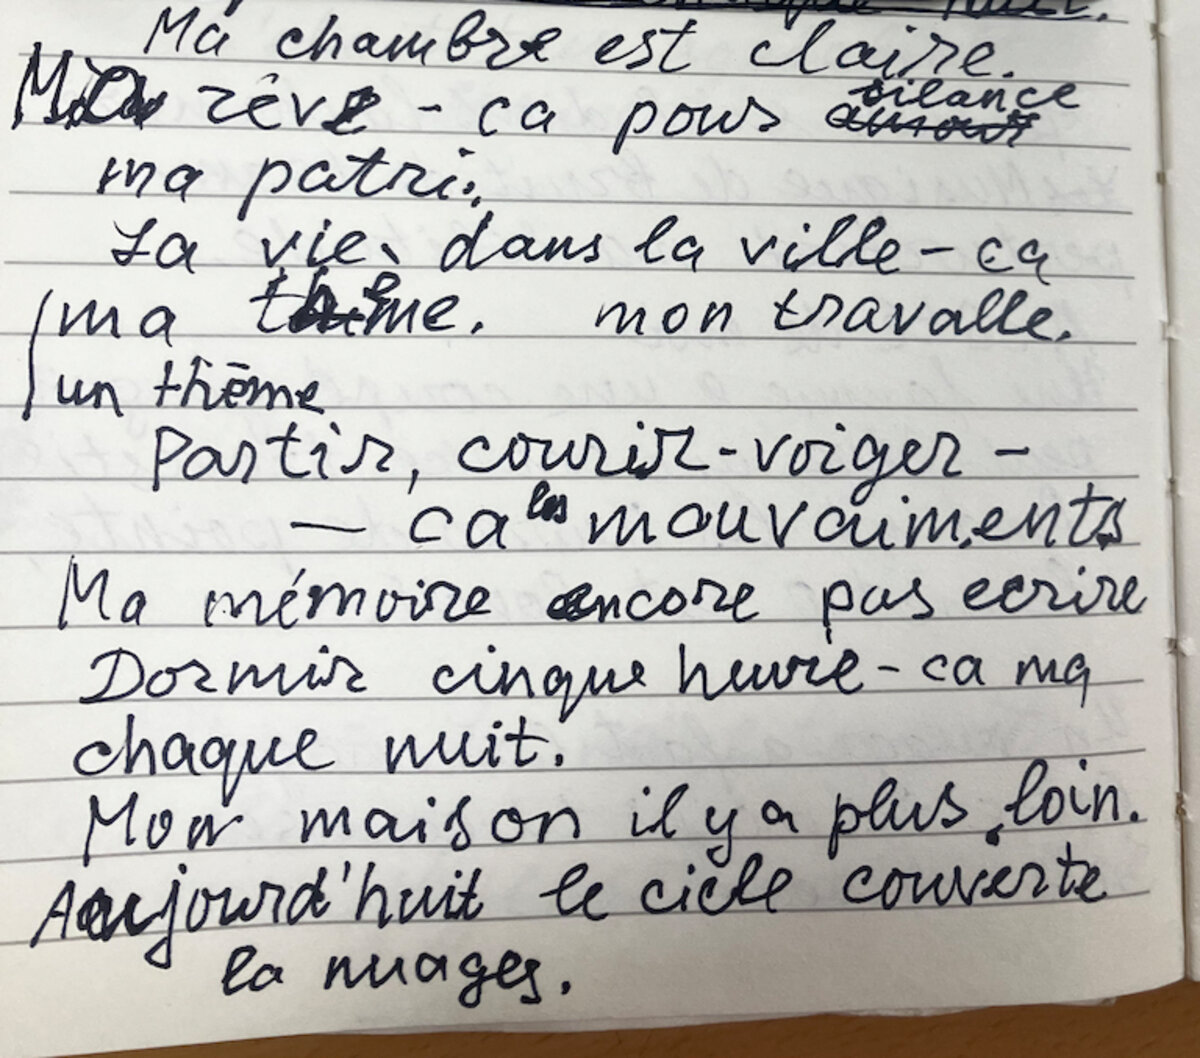 nuit.
Ma chambre est claire.
rêve - ca pour silance
ma patri.
La vie dans la ville - ca
ma thême. mon travalle.
un thême
Partir, courir - voiger -
- ca les mouvaiments
Ma mémoire encore pas ecrire
Dormir cinque heure - ca ma
chaque nuit.
Mon maison il y a plus loin.
Aujourd'huit le ciele couverte
la nuages.